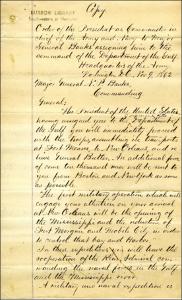 Copy
Order of the President as Commander in
chief of the Army and Navy to Major
General Banks assigning him to the
command of the Department of the Gulf.
Headquarters of the Army
Washington, D.C. Nov 9, 1862
Major General N. P. Banks
Commanding
General:
The President of the United States
having assigned you to the Department of
the Gulf You will immediately proceed
with the troops assembling in transports
at Fort Monroe, to New Orleans, and re-
lieve General Butler. An additional force
of some ten thousand men will be sent to
you from Boston and New York as soon
as possible.
The first military operation which will
engage your attention on your arrival
at New Orleans will be the opening of
the Mississippi and the reduction of
Fort Morgan and Mobile City in order
to control that bay and harbor.
In these expeditions you will have the
cooperation of the Rear Admiral com-
manding the naval forces in the Gulf
and the Mississippi river.
A military and naval expedition is